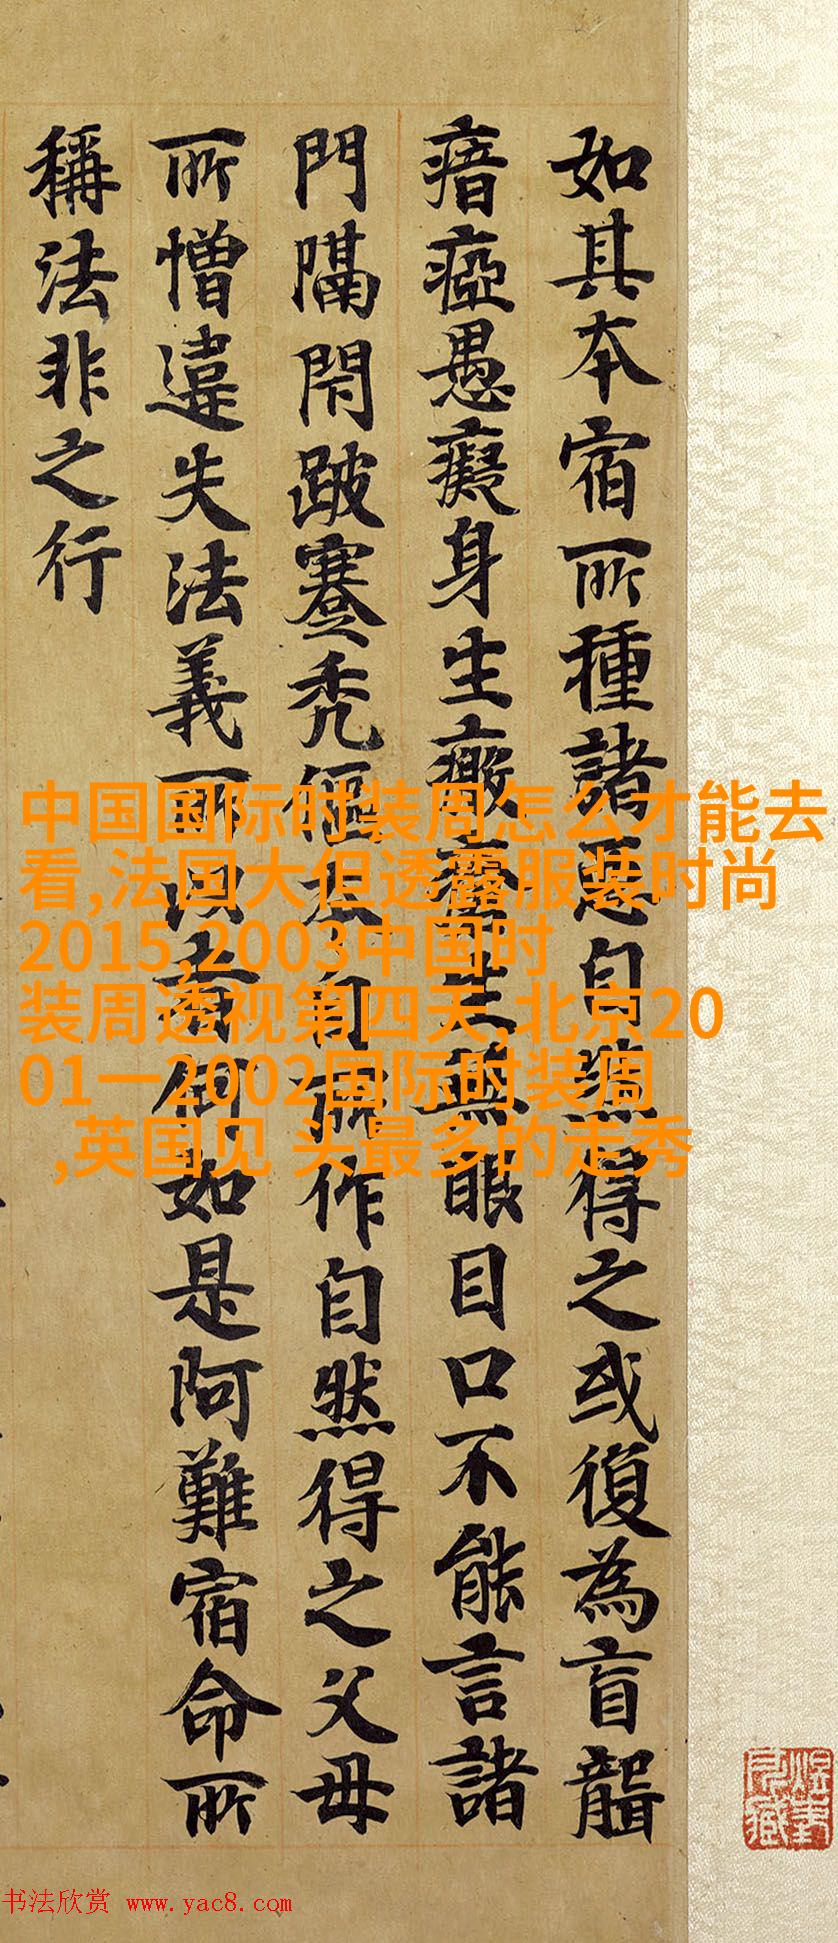 如其本宿所種諸惡自然得之或復為盲聾
瘖瘂愚癡身生生無眼目口不能言諸
門隔閇跛蹇禿傴本自所作自然得之父母
所憎違失法義所以者何如是阿難宿命所
稱法非之行
中国国际时装周怎么才能去
看,法国大但透露服装时尚
2015,2003中国时
装周透视第四天,北京20
01一2002国际时装周
,英国见 头最多的走秀
书法欣赏 www.yac8.com